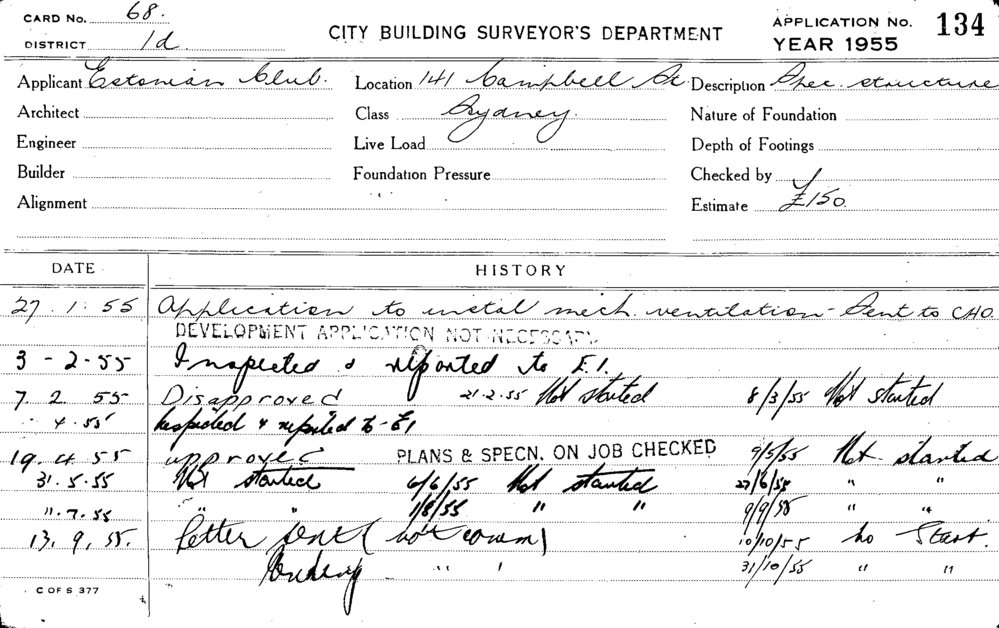 CARD No. 68.
DISTRICT 1d
CITY BUILDING SURVEYOR'S DEPARTMENT
APPLICATION No. 134
YEAR 1955
Applicant Estonian Club. Location 141 Campbell St. Description Spec. structure
Architect Class Sydney. Nature of Foundation
Engineer Live Load Depth of Footings
Builder Foundation Pressure Checked by
Alignment Estimate £150.
DATE HISTORY
27.1.55 Application to instal mech. ventilation - Sent to CHO.
DEVELOPMENT APPLICATION NOT NECESSARY
3-2-55 Inspected & reported to E.1.
7 2 55 Disapproved 21.2.55 Not started 8/3/55 Not started
4.55 Inspected & reported to E1
19.4.55 approved PLANS & SPECN. ON JOB CHECKED 9/5/55 Not started
31.5.55 Not started 6/6/55 Not started 27/6/55 " "
11.7.55 " " 1/8/55 " " 9/9/55 " "
13.9.55. Letter sent (not comm) 10/10/55 no Start.
" ' 31/10/55 " "
C OF S 377